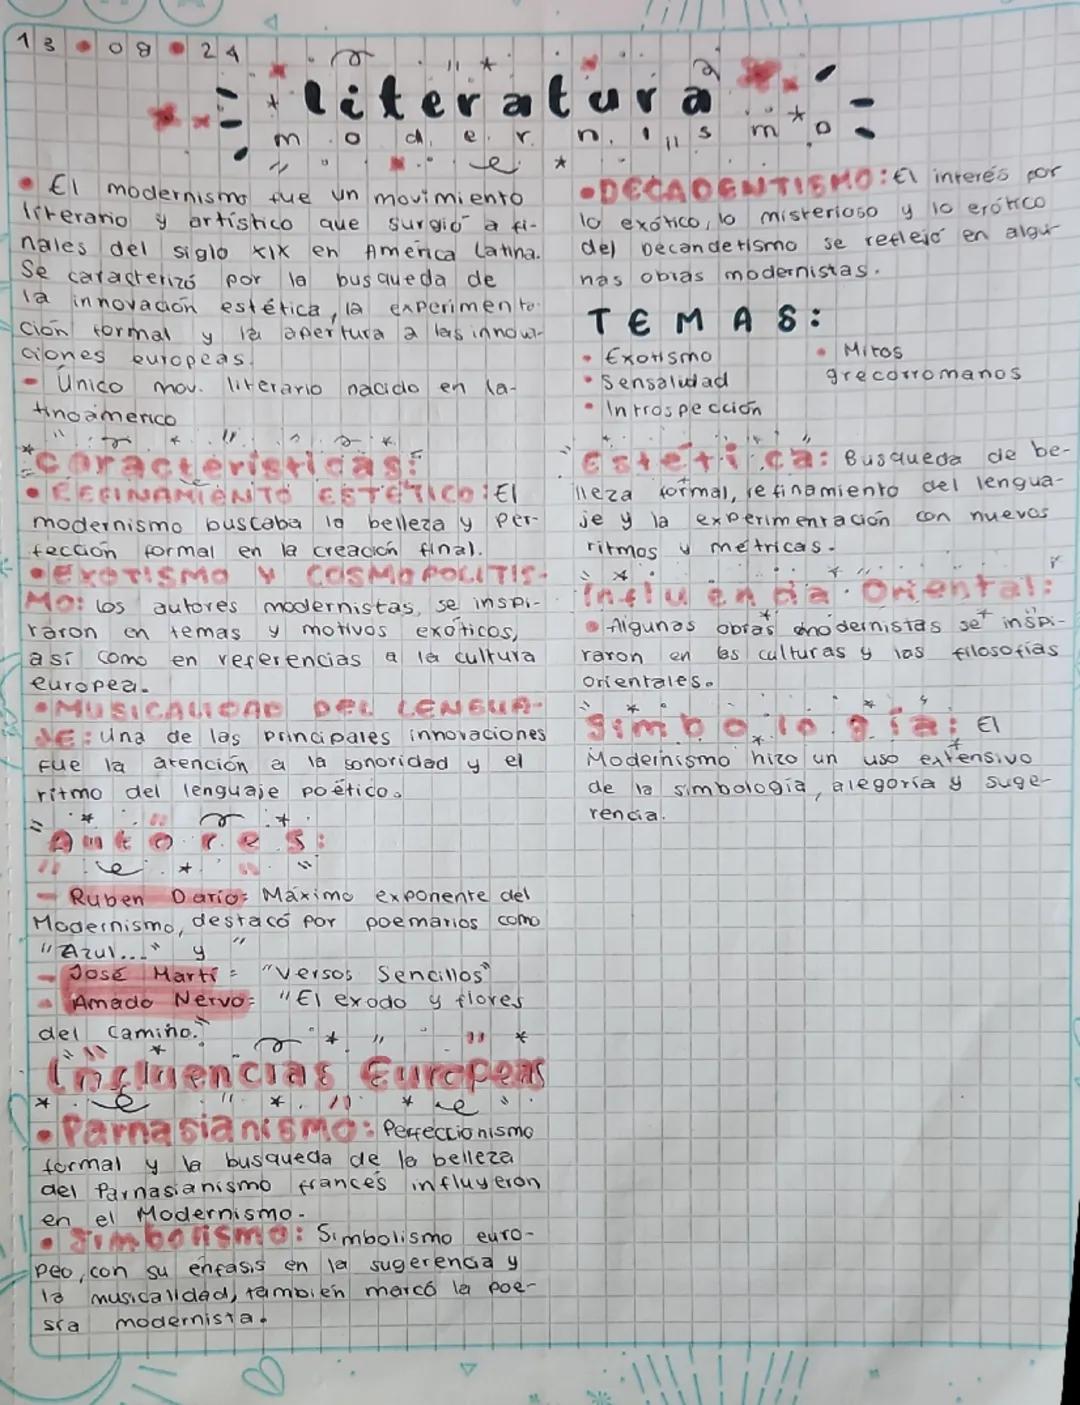 13 • 08 • 24
literatura
modernismo
• El modernismo fue un movimiento
literario y artístico que surgió a fi-
nales del siglo XIX en América latina.
Se caracterizó por la busqueda de
la innovación estética, la experimenta-
ción formal y la apertura a las innova-
ciones europeas.
- Único mov. literario nacido en la-
tinoámerico
Características:
• REFINAMIENTO ESTÉTICO: El
modernismo buscaba la belleza y per-
fección formal en la creación final.
• EXOTISMO Y COSMOPOLITIS-
MO: los autores modernistas, se inspi-
raron en temas y motivos exóticos,
así como en referencias a la cultura
europea.
• MUSICALIDAD DEL LENGUA-
JE: Una de las principales innovaciones
fue la atención a la sonoridad y el
ritmo del lenguaje poético.
Autores:
- Ruben Dario: Máximo exponente del
Modernismo, destacó por poemarios como
"Azul..." y "
- José Martí = "Versos Sencillos"
- Amado Nervo= "El exodo y flores
del camino."
Influencias Europeas
• Parnasianismo: Perfeccionismo
formal y la busqueda de la belleza
del Parnasianismo francés influyeron
en el Modernismo.
• Simbolismo: Simbolismo euro-
peo, con su énfasis en la sugerencia y
la musicalidad, también marcó la poe-
sía modernista.
• DECADENTISMO: El interés por
lo exótico, lo misterioso y lo erótico
del Decandetismo se reflejó en algu-
nas obras modernistas.
TEMAS:
• Exotismo
• Sensalidad
• Introspección
• Mitos
grecorromanos
Estética: Busqueda de be-
lleza formal, refinamiento del lengua-
je y la experimentación con nuevos
ritmos y métricas.
Influencia Oriental:
• Algunas obras modernistas se inspi-
raron en las culturas y las filosofías
orientales.
Simbología: El
Modernismo hizo un uso extensivo
de la simbología, alegoría y suge-
rencia.